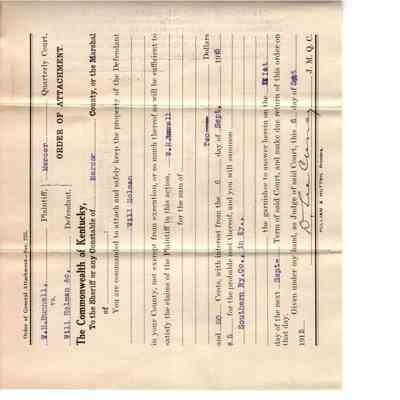 Order of General Attachment—Sec. 225.
W.H.Bunnell, Plaintiff,
vs.
Will Holman &c, Defendant.
Mercer Quarterly Court.
ORDER OF ATTACHMENT.
The Commonwealth of Kentucky,
To the Sheriff or any Constable of Mercer County, or the Marshal
of
You are commanded to attach and safely keep the property of the Defendant
Will Holman
in your County, not exempt from execution, or so much thereof as will be sufficient to
satisfy the claims of the Plaintiff in this action, W.H.Bunnell
for the sum of
Two Dollars
and 50 Cents, with interest from the 6 day of Sept. 191
$.5 for the probable cost thereof, and you will summon
Southern Ry.Co., in Ky.,
the garnishee to answer herein on the 21st
day of the next Sept. Term of said Court, and make due return of this order on
that day.
Given under my hand, as Judge of said Court, this 6 day of Sept
191
J. M. Q. C.